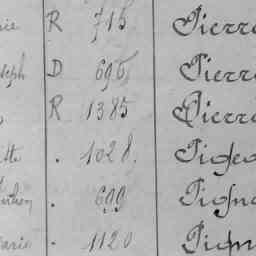 R 715 Pierre
seph D 695 Pierre
R 1385 Pierre
tte . 1028. Pigeo
. 699 Pigna
arie . 1120 Pign